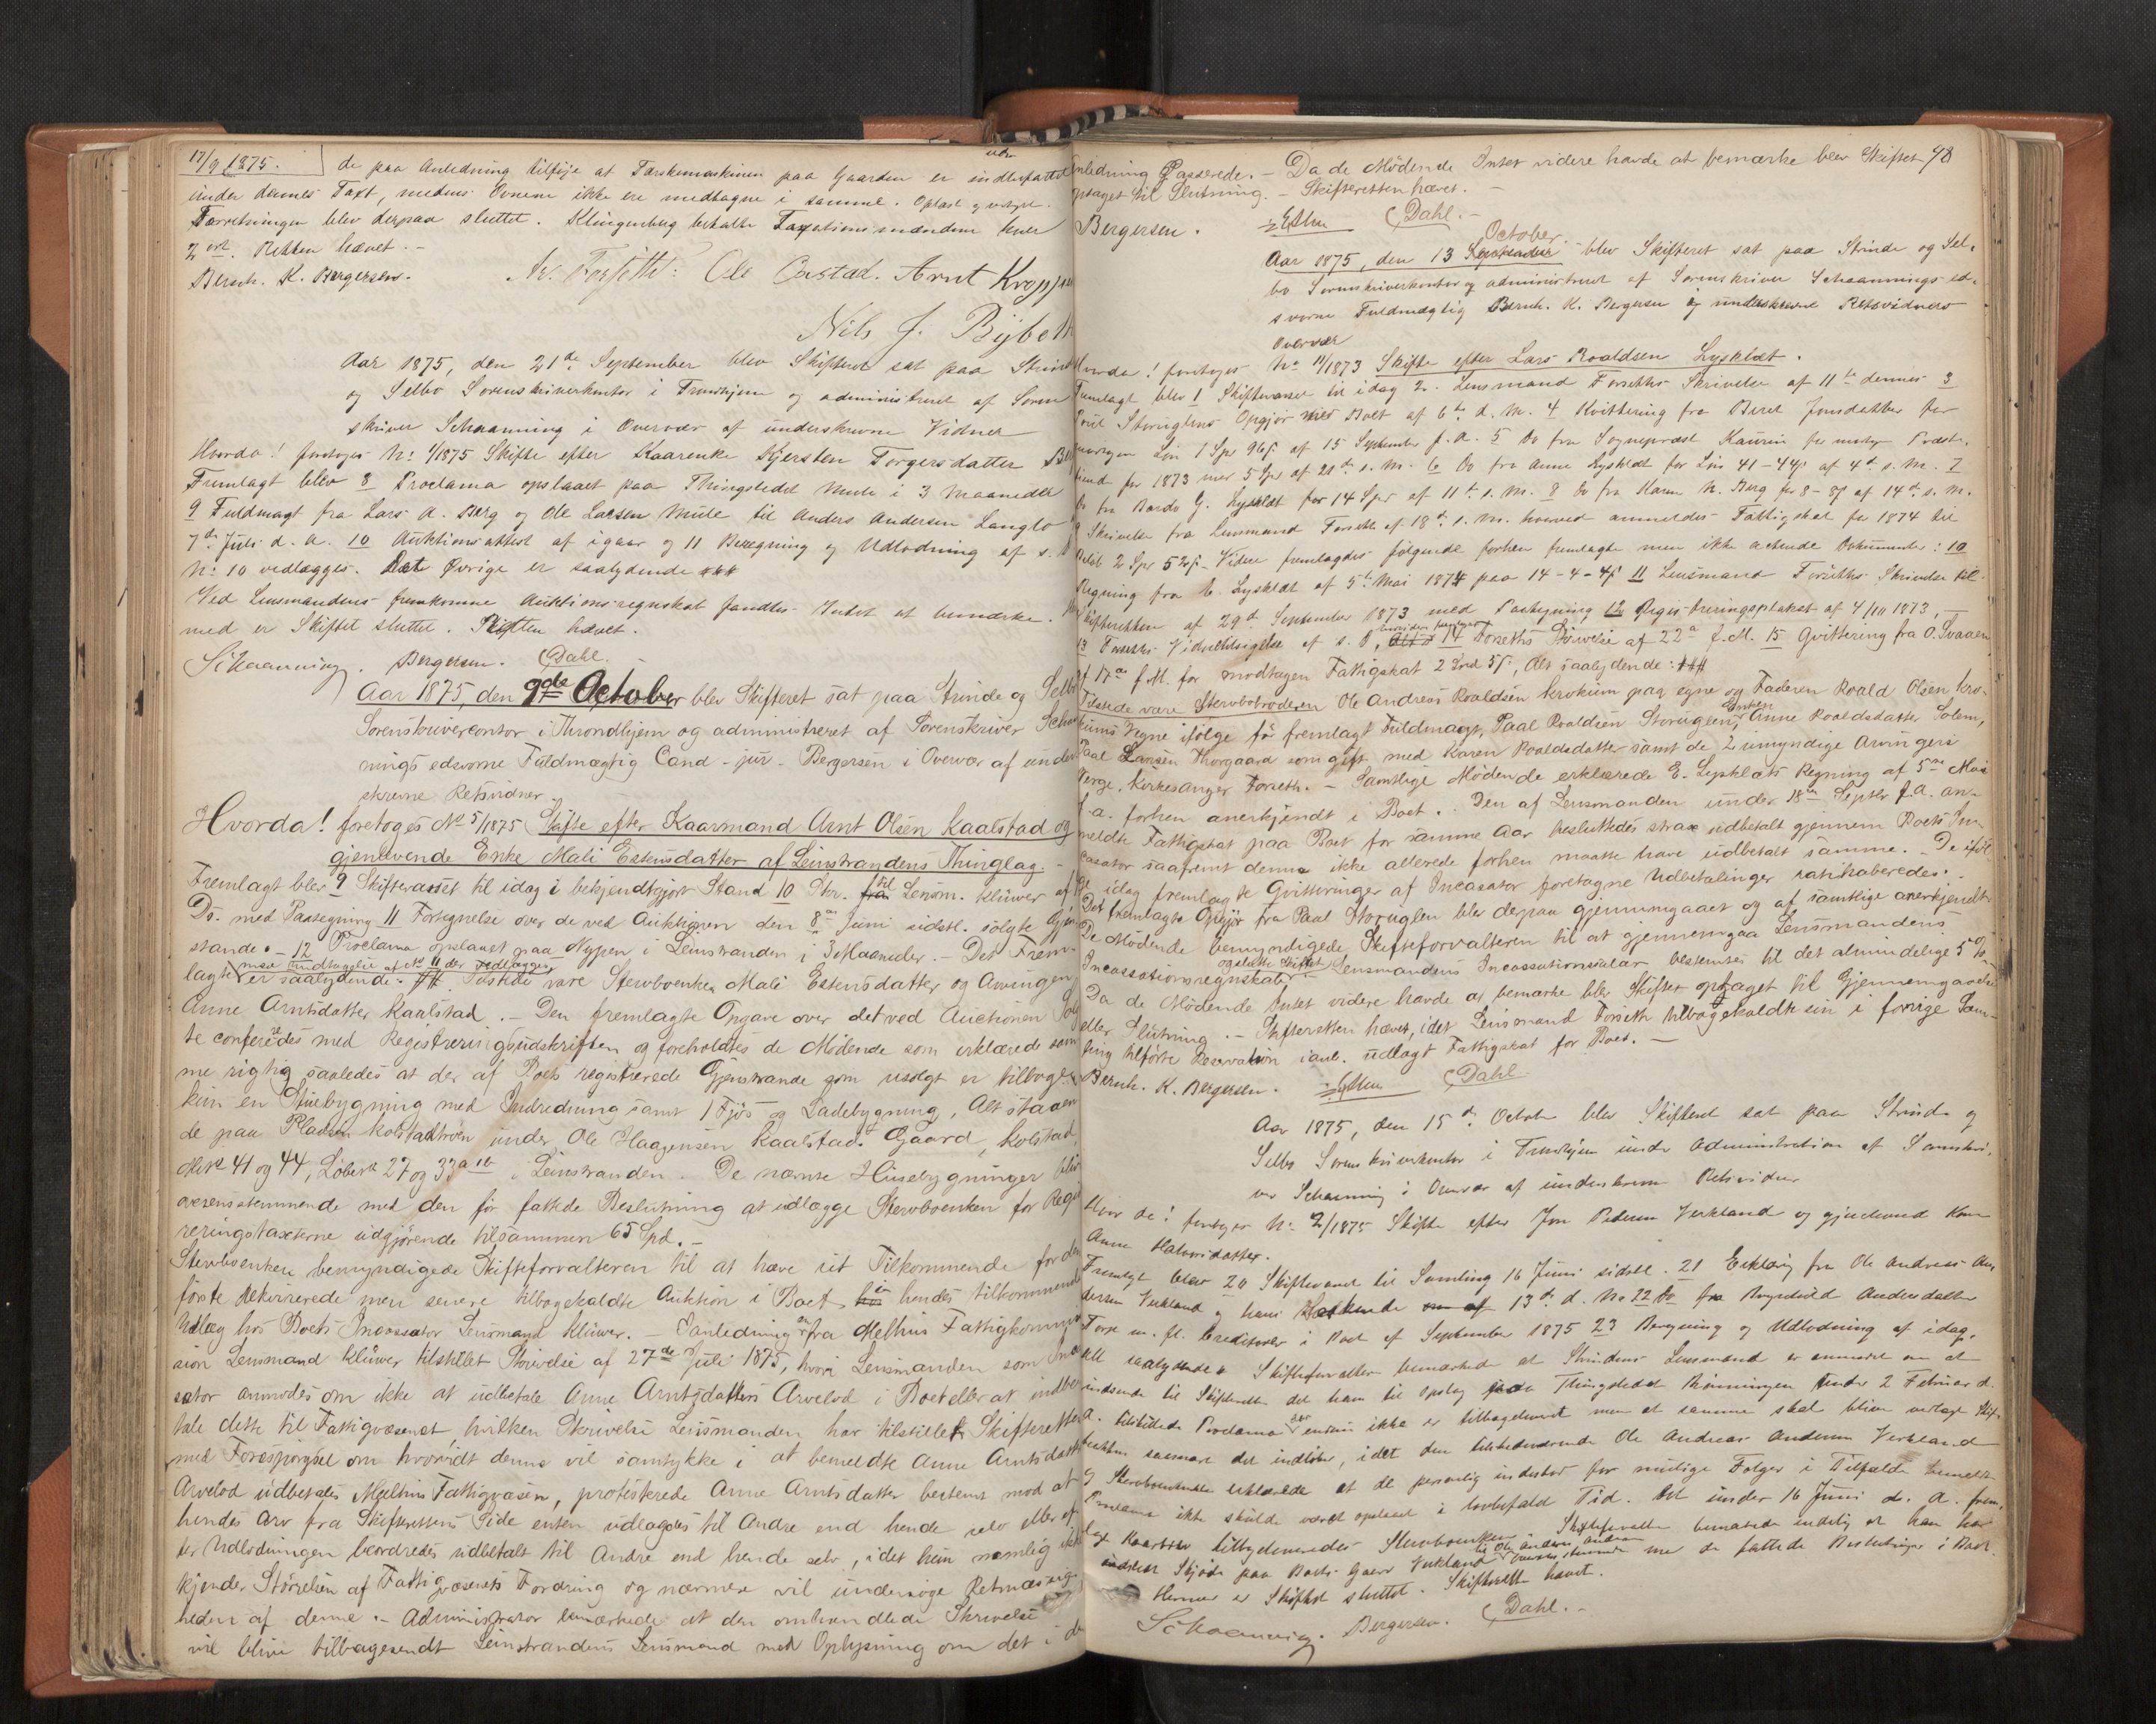 17/9 1875.
de paa Anledning tilføie at Tærskemaskinen paa Gaarden er indbefattet
under dennes Taxt, medens Ovnene ikke ere medtagne i samme. Oplæst og vedtaget.
Forretningen blev derpaa sluttet. Klingenberg betalte Taxationsmændene hver
2 ort. Retten hævet. -
Bernh. K. Bergersen. Ole Oustad. Arnt Kroppan
Nils J.
Aar 1875, den 21de September blev Skifteret sat paa Strinde
og Selbo Sorenskriverkontor i Trondhjem og administreret af Soren
skriver Schaanning i Overvær af underskrevne Vidner
Hvorda! foretoges No 1/1875 Skifte efter Kaarenke Kjersten Torgersdatter
Fremlagt blev 8 Proclama opslaaet paa Thingstedet Mule i 3 Maaneder
9 Fuldmagt fra Lars A. Berg og Ole Larsen Mule til Anders Andersen Langlo
7de Juli d. A. 10 Auktionsattest af igaar og 11 Beregning og Udlodning af s. D
No 10 vedlægges. Det Øvrige er saalydende
Ved Lensmandens fremkomne Auktionsregnskab fandtes Intet at bemærke.
med er Skiftet sluttet. Skifteretten hævet.
Schaanning. Bergersen. Dahl.
Aar 1875, den 9de October blev Skifteret sat paa Strinde og Selbo
Sorenskrivercontor i Throndhjem og administreret af Sorenskriver Schaan
nings edsvorne Fuldmægtig Cand. jur. Bergersen i Overvær af under
skrevne Retsvidner.
Hvorda! foretoges No 5/1875 Skifte efter Kaarmand Arnt Olsen Kaalstad og
gjenlevende Enke Mali Estensdatter af Leinstrandens Thinglag. -
Fremlagt blev 9 Skiftevarsel til idag i bekjendtgjort Stand 10 Skr. fra til Lensm. Klüwer af
Do. med Paategning 11 Fortegnelse over de ved Auktionen den 8de Juni sidstl. solgte Gjen
stande. - 12 Proclama opslaaet paa Nypen i Leinstranden i 3 Maaneder. - Det Frem-
lagte med Undtagelse af No 11 der vedlægges er saalydende: Tilstede vare Stervboenken Mali Estensdatter og Arvingen
Anne Arntsdatter Kaalstad. - Den fremlagte Opgave over det ved Auctionen Solg
te confereredes med Registreringsudskriften og foreholdtes de Mødende som erklærede sam
me rigtig saaledes at der af Boets registrerede Gjenstande som usolgt er tilbage
kun en Stuebygning med Indredning samt 1 Fjøs og Ladebygning, Alt staaen
de paa Pladsen Kolstadtrøen under Ole Haagensen Kaalstads Gaard, Kolstad,
Mtr 41 og 44, Løber 27 og 33 a ib i Leinstranden. De nævnte Husebygninger blev
overensstemmende med den før fattede Beslutning at udlægge Stervboenken for Regist
reringstaxterne udgjørende tilsammen 65 Spd. -
Stervboenken bemyndigede Skifteforvalteren til at hæve sit Tilkommende for den
første rekvirerede men senere tilbagekaldte Auktion i Boet i hendes tilkommende
Udlæg hos Boets Incassator Lensmand Klüwer. - I Anledning en fra Melhus Fattigkommis
sion Lensmand Klüwer tilstillet Skrivelse af 27de Juli 1875, hvori Lensmanden som Inc
sator anmodes om ikke at udbetale Anne Arntsdatters Arvelod i Boet eller at indbe
tale dette til Fattigvæsenet, hvilken Skrivelse Lensmanden har tilstillet Skifteretten
med Forespørgsel om hvorvidt denne vil samtykke i at bemeldte Anne Arntsdatters
Arvelod udbetales Melhus Fattigvæsen, protesterede Anne Arntsdatter bestemt mod at
hendes Arv fra Skifterettens Side enten udlagdes til Andre end hende selv eller ef
ter Udlodningen beordredes udbetalt til Andre end hende selv, idet hun nemlig ikke
kjender Størrelsen af Fattigvæsenets Fordring og nærmere vil undersøge Retmæssig-
heden af denne. - Administrator bemærkede at den omhandlede Skrivelse
vil blive tilbagesendt Leinstrandens Lensmand med Oplysning om det i den
Anledning Passerede. - Da de Mødende Intet videre havde at bemærke blev Skiftet 48
optaget til Slutning. - Skifteretten hævet. -
Bergersen. Dahl. -
October
Aar 1875, den 13 September blev Skifteret sat paa Strinde og Sel-
bo Sorenskriverkontor og administreret af Sorenskriver Schaannings ed-
svorne Fuldmægtig Bernh. K. Bergersen og underskrevne Retsvidners
Overvær
Hvorda! foretoges No 11/1873 Skifte efter Lars Roaldsen Lysklæt.
Fremlagt blev 1 Skiftevarsel til idag 2. Lensmand Forseths Skrivelse af 11te dennes 3
Poul Storuglens Opgjør med Boet af 6te d. M. 4 Kvittering fra Beret Jonsdatter for
Løn 1 Spd 96 s. af 15 September f. A. 5 Do fra Sogneprest Kaurin for Præst-
tiend for 1873 med 5 Spd af 21de s. M. 6 Do fra Anne Lysklæt for Løn 41-44 s. af 4de s. M. 7
Do fra Bardo G. Lysklæt for 14 Spd af 11te s. M. 8 Do fra Karen N. Berg for 8-8 s. af 14de s. M.
9 Skrivelse fra Lensmand Forseth af 18de s. M. hvorved anmeldes Fattigskat for 1874 til
Beløb 2 Spd 52 s. - Videre fremlagdes følgende forhen fremlagte men ikke acterede Dokumenter: 10
Regning fra E. Lysklæt af 5te Mai 1874 paa 14-4-4 s. 11 Lensmand Forseths Skrivelse til
Skifteretten af 29de September 1873 med Paategning 12 Registreringsplakat af 4/10 1873, -
13 Forseths af s. D, 14 Forseths Skrivelse af 22de f. M. 15 Qvittering fra O. Svaaen
af 17de f. M. for modtagen Fattigskat 2 Spd 5 s., Alt saalydende:
Tilstede vare Stervbobroderen Ole Andreas Roaldsen Krokum paa egne og Faderen Roald Olsen Kro-
kums Vegne ifølge før fremlagt Fuldmagt, Paal Roaldsen Storuglen, Enken Anne Roaldsdatter Solem,
Paal Larsen Thorgaard som gift med Karen Roaldsdatter samt de 2 umyndige Arvingers
Verge, Kirkesanger Forseth. - Samtlige Mødende erklærede E. Lysklæts Regning af 5te Mai
f. A. forhen anerkjendt i Boet. Den af Lensmanden under 18de Septbr f. A. an-
meldte Fattigskat paa Boet for samme Aar besluttedes strax udbetalt gjennem Boets In-
casator saafremt denne ikke allerede forhen maatte have udbetalt samme. - De iføl-
ge idag fremlagte Qvitteringer af Incasator foretagne Udbetalinger ratihaberedes. -
Det fremlagte Opgjør fra Paul Storuglen blev derpaa gjennemgaaet og af samtlige anerkjendt
De Mødende bemyndigede Skifteforvalteren til at gjennemgaa Lensmandens
Incassationsregnskab og slutte Skiftet. Lensmandens Incassationssalær bestemtes til det almindelige 5 %
Da de Mødende Intet videre havde at bemærke blev Skiftet optaget til Gjennemgaaelse
eller Slutning. - Skifteretten hævet, idet Lensmand Forseth tilbagekaldte sin i forrige Sam-
ling tilførte Reservation i anl. udlagt Fattigskat for Boet. -
Bernh. K. Bergersen. Dahl.
Aar 1875, den 15de October blev Skifteret sat paa Strinde og
Selbo Sorenskriverkontor i Trondhjem under Administration af Sorenskri-
ver Schaanning i Overvær af underskrevne Retsvidner
Hvorda! foretoges No 2/1875 Skifte efter Jon Pedersen Verkland og gjenlevende Kone
Anne Halvorsdatter.
Fremlagt blev 20 Skiftevarsel til Samling 16 Juni sidstl. 21 Erklæring fra Ole Andreas An-
dersen Verkland og hans 13de d. M. 22 Do fra Ingebrikt Andersdatter
Torp m. fl. Creditorer i Boet af September 1875 23 Beregning og Udlodning af idag.
Alt saalydende. Skifteforvalteren bemærkede at Strindens Lensmand er anmodet om at
indsende til Skifteretten det ham til Opslag paa Thingstedet Rønningen under 2 Februar d.
A. tilstillede Proclama der endnu ikke er tilbagekommet men at samme skal blive vedlagt Skif-
teretten saasnart det indløber, idet den tilstedeværende Ole Andreas Andersen Verkland
og Stervboenken erklærede at de personlig indestod for mulige Følger i Tilfælde bemeldte
Proclama ikke skulde været opslaaet i lovbefalet Tid. Det under 16 Juni d. A. frem-
lagte Kaarbrev Stervboenken. Skifteforvalteren bemærkede endelig at han har
Skjøde paa Boets Gaard Verkland til Ole Andreas Andersen overensstemmende med de fattede Beslutninger i Boet.
Hermed er Skiftet sluttet. Skifteretten hævet.
Schaanning. Bergersen. Dahl. -